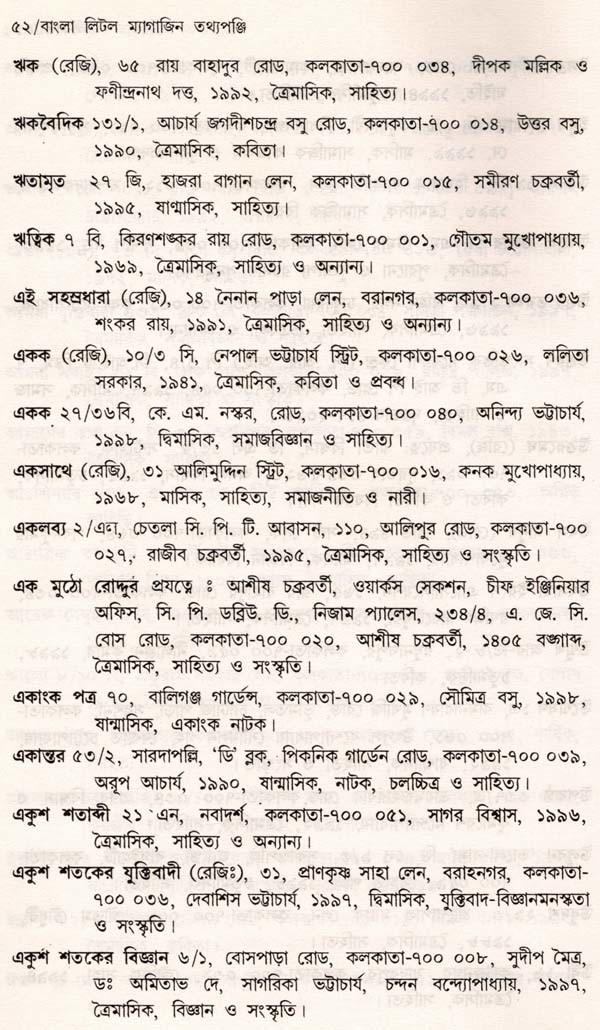 ৫২/বাংলা লিটল ম্যাগাজিন তথ্যপঞ্জি
ঋক (রেজি), ৬৫ রায় বাহাদুর রোড, কলকাতা-৭০০ ০৩৪, দীপক মল্লিক ও
ফণীন্দ্রনাথ দত্ত, ১৯৯২, ত্রৈমাসিক, সাহিত্য।
ঋকবৈদিক ১৩১/১, আচার্য জগদীশচন্দ্র বসু রোড, কলকাতা-৭০০ ০১৪, উত্তর বসু,
১৯৯০, ত্রৈমাসিক, কবিতা।
ঋতামৃত ২৭ জি, হাজরা বাগান লেন, কলকাতা-৭০০ ০১৫, সমীরণ চক্রবর্তী,
১৯৯৫, ষাণ্মাসিক, সাহিত্য।
ঋত্বিক ৭ বি, কিরণশঙ্কর রায় রোড, কলকাতা-৭০০ ০০১, গৌতম মুখোপাধ্যায়,
১৯৬৯, ত্রৈমাসিক, সাহিত্য ও অন্যান্য।
এই সহস্রধারা (রেজি), ১৪ নৈনান পাড়া লেন, বরানগর, কলকাতা-৭০০ ০৩৬,
শংকর রায়, ১৯৯১, ত্রৈমাসিক, সাহিত্য ও অন্যান্য।
একক (রেজি), ১০/৩ সি, নেপাল ভট্টাচার্য স্ট্রিট, কলকাতা-৭০০ ০২৬, ললিতা
সরকার, ১৯৪১, ত্রৈমাসিক, কবিতা ও প্রবন্ধ।
একক ২৭/৩৬বি, কে. এম. নস্কর, রোড,কলকাতা-৭০০ ০৪০, অনিন্দ্য ভট্টাচার্য,
১৯৯৮, দ্বিমাসিক, সমাজবিজ্ঞান ও সাহিত্য।
একসাথে (রেজি), ৩১ আলিমুদ্দিন স্ট্রিট, কলকাতা-৭০০ ০১৬, কনক মুখোপাধ্যায়,
১৯৬৮, মাসিক, সাহিত্য, সমাজনীতি ও নারী।
একলব্য ২/এল, চেতলা সি. পি. টি. আবাসন, ১১০, আলিপুর রোড, কলকাতা-৭০০
০২৭, রাজীব চক্রবর্তী, ১৯৯৫, ত্রৈমাসিক, সাহিত্য ও সংস্কৃতি।
এক মুঠো রোদ্দুর প্রযত্নে ঃ আশীষ চক্রবর্তী, ওয়ার্কস সেকশন, চীফ ইঞ্জিনিয়ার
অফিস, সি. পি. ডব্লিউ. ডি., নিজাম প্যালেস, ২৩৪/৪, এ. জে. সি.
বোস রোড, কলকাতা-৭০০ ০২০, আশীষ চক্রবর্তী, ১৪০৫ বঙ্গাব্দ,
ত্রৈমাসিক, সাহিত্য ও সংস্কৃতি।
একাংক পত্র ৭০, বালিগঞ্জ গার্ডেন্স, কলকাতা-৭০০ ০২৯, সৌমিত্র বসু, ১৯৯৮,
ষান্মাসিক, একাংক নাটক।
একান্তর ৫৩/২, সারদাপল্লি, ‘ডি’ ব্লক, পিকনিক গার্ডেন রোড, কলকাতা-৭০০ ০৩৯,
অরূপ আচার্য, ১৯৯০, ষান্মাসিক, নাটক, চলচ্চিত্র ও সাহিত্য।
একুশ শতাব্দী ২১ এন, নবাদর্শ, কলকাতা-৭০০ ০৫১, সাগর বিশ্বাস, ১৯৯৬,
ত্রৈমাসিক, সাহিত্য ও অন্যান্য।
একুশ শতকের যুক্তিবাদী (রেজিঃ), ৩১, প্রাণকৃষ্ণ সাহা লেন, বরাহনগর, কলকাতা-
৭০০ ০৩৬, দেবাশিস ভট্টাচার্য, ১৯৯৭, দ্বিমাসিক, যুক্তিবাদ-বিজ্ঞানমনস্কতা
ও সংস্কৃতি।
একুশ শতকের বিজ্ঞান ৬/১, বোসপাড়া রোড, কলকাতা-৭০০ ০০৮, সুদীপ মৈত্র,
ডঃ অমিতাভ দে, সাগরিকা ভট্টাচার্য, চন্দন বন্দ্যোপাধ্যায়, ১৯৯৭,
ত্রৈমাসিক, বিজ্ঞান ও সংস্কৃতি।